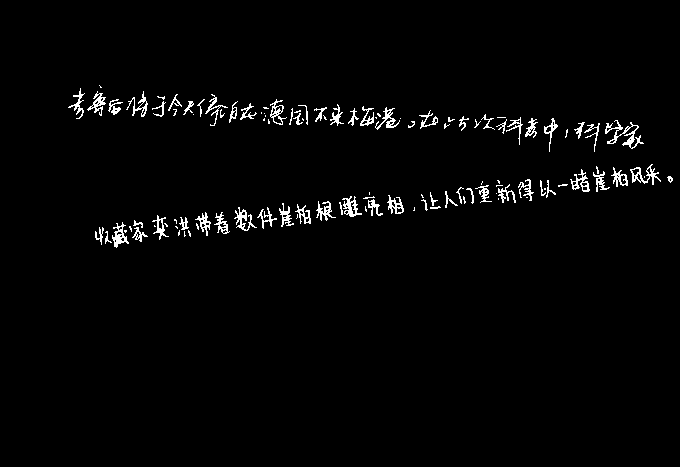 考察后将于今天停泊在德国不来梅港。在此次科考中,科学家
收藏家奕洪带着数件崖柏根雕亮相,让人们重新得以一睹崖柏风采。